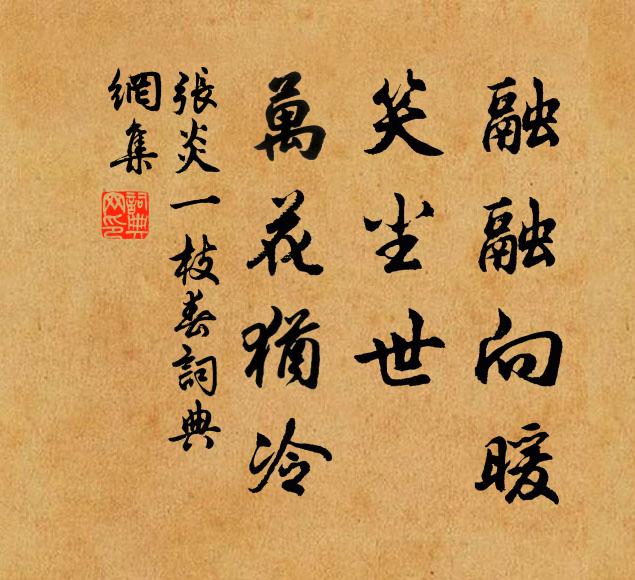 融融向暖
笑尘世
萬花猶冷
張炎一枝春詞典
網集
詞典
网印